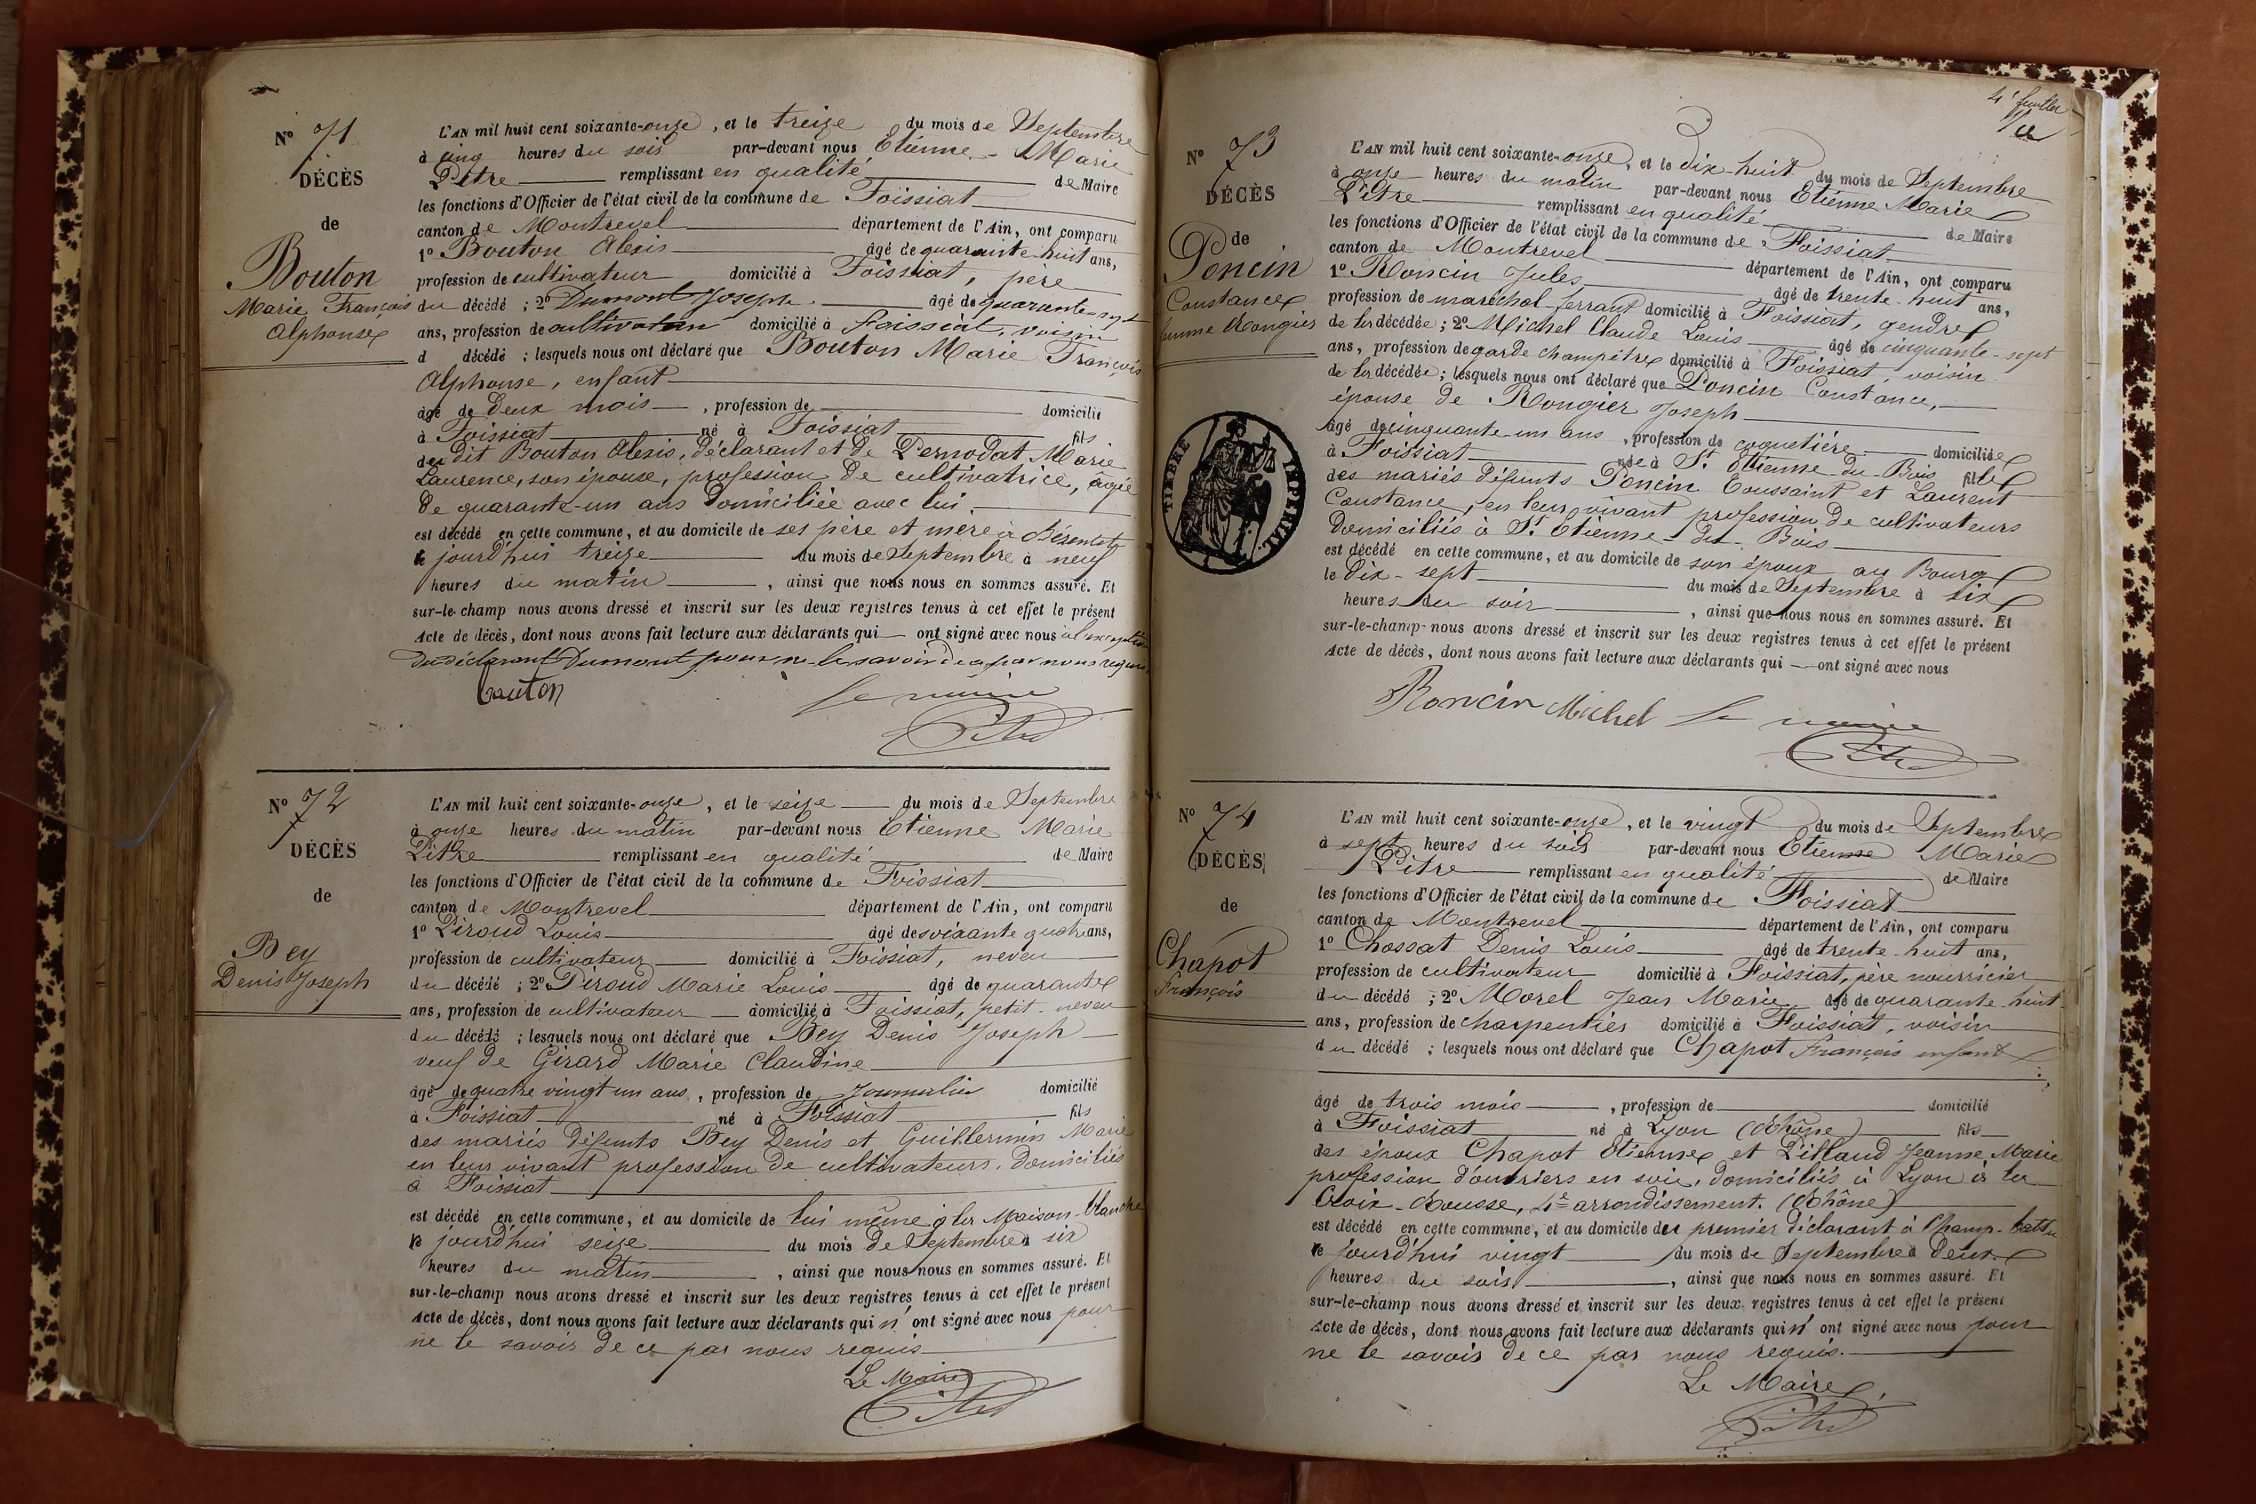 N° 71
DÉCÈS
de
Bouton
Marie François
Alphonse
L'AN mil huit cent soixante-onze, et le treize du mois de Septembre
à cinq heures du soir par-devant nous Etienne Marie
Pitre remplissant en qualité de Maire
les fonctions d'Officier de l'état civil de la commune de Foissiat
canton de Montrevel département de l'Ain, ont comparu
1° Bouton Alexis âgé de quarante huit ans,
profession de cultivateur domicilié à Foissiat, père
du décédé ; 2° Dumont Joseph âgé de quarante-sept
ans, profession de cultivateur domicilié à Foissiat, voisin
d décédé ; lesquels nous ont déclaré que Bouton Marie François
Alphonse, enfant
âgé de deux mois, profession de domicilié
à Foissiat né à Foissiat fils
du dit Bouton Alexis, déclarant et de Pernodat Marie
Laurence, son épouse, profession de cultivatrice, âgée
de quarante-un ans domiciliée avec lui.
est décédé en cette commune, et au domicile de ses père et mère à
le jourd'hui treize du mois de Septembre à neuf
heures du matin, ainsi que nous nous en sommes assuré. Et
sur-le-champ nous avons dressé et inscrit sur les deux registres tenus à cet effet le présent
Acte de décès, dont nous avons fait lecture aux déclarants qui ont signé avec nous à l'exception
du déclarant Dumont pour ne le savoir de ce par nous requis
Bouton Le maire
Pitre
N° 72
DÉCÈS
de
Bey
Denis Joseph
L'AN mil huit cent soixante-onze, et le seize du mois de Septembre
à onze heures du matin par-devant nous Etienne Marie
Pitre remplissant en qualité de Maire
les fonctions d'Officier de l'état civil de la commune de Foissiat
canton de Montrevel département de l'Ain, ont comparu
1° Piroud Louis âgé de soixante quatre ans,
profession de cultivateur domicilié à Foissiat, neveu
du décédé ; 2° Piroud Marie Louis âgé de quarante
ans, profession de cultivateur domicilié à Foissiat, petit-neveu
du décédé ; lesquels nous ont déclaré que Bey Denis Joseph
veuf de Girard Marie Claudine
âgé de quatre vingt un ans, profession de Journalier domicilié
à Foissiat né à Foissiat fils
des mariés défunts Bey Denis et Guillermin Marie
en leur vivant profession de cultivateurs, domiciliés
à Foissiat
est décédé en cette commune, et au domicile de lui même à la Maison-blanche
le jourd'hui seize du mois de Septembre à six
heures du matin, ainsi que nous nous en sommes assuré. Et
sur-le-champ nous avons dressé et inscrit sur les deux registres tenus à cet effet le présent
Acte de décès, dont nous avons fait lecture aux déclarants qui n'ont signé avec nous pour
ne le savoir de ce par nous requis
Le Maire
Pitre
4e feuillet
N° 73
DÉCÈS
de
Poncin
Constance
femme Rongier
TIMBRE IMPÉRIAL
L'AN mil huit cent soixante-onze, et le dix-huit du mois de Septembre
à onze heures du matin par-devant nous Etienne Marie
Pitre remplissant en qualité de Maire
les fonctions d'Officier de l'état civil de la commune de Foissiat
canton de Montrevel département de l'Ain, ont comparu
1° Roncin Jules âgé de trente-huit ans,
profession de maréchal-ferrant domicilié à Foissiat, gendre
de la décédée ; 2° Michel Claude Louis âgé de cinquante-sept
ans, profession de garde champêtre domicilié à Foissiat, voisin
de la décédée ; lesquels nous ont déclaré que Poncin Constance,
épouse de Rongier Joseph
âgé de cinquante-un ans, profession de coquetière domiciliée
à Foissiat née à St Etienne-du-Bois fille
des mariés défunts Poncin Toussaint et Laurent
Constance, en leur vivant profession de cultivateurs
domiciliés à St Etienne-du-Bois
est décédé en cette commune, et au domicile de son époux au Bourg
le dix-sept du mois de Septembre à six
heures du soir, ainsi que nous nous en sommes assuré. Et
sur-le-champ nous avons dressé et inscrit sur les deux registres tenus à cet effet le présent
Acte de décès, dont nous avons fait lecture aux déclarants qui ont signé avec nous
Roncin Michel Le maire
Pitre
N° 74
DÉCÈS
de
Chapot
François
L'AN mil huit cent soixante-onze, et le vingt du mois de Septembre
à sept heures du soir par-devant nous Etienne Marie
Pitre remplissant en qualité de Maire
les fonctions d'Officier de l'état civil de la commune de Foissiat
canton de Montrevel département de l'Ain, ont comparu
1° Chossat Denis Louis âgé de trente-huit ans,
profession de cultivateur domicilié à Foissiat, père nourricier
du décédé ; 2° Morel Jean Marie âgé de quarante-huit
ans, profession de charpentier domicilié à Foissiat, voisin
du décédé ; lesquels nous ont déclaré que Chapot François enfant
âgé de trois mois, profession de domicilié
à Foissiat né à Lyon (Rhône) fils
des époux Chapot Etienne et Pilland Jeanne Marie
profession d'ouvriers en soie, domiciliés à Lyon à la
Croix-Rousse, 4e arrondissement. (Rhône)
est décédé en cette commune, et au domicile du premier déclarant à Champ-battu
le jourd'hui vingt du mois de Septembre à deux
heures du soir, ainsi que nous nous en sommes assuré. Et
sur-le-champ nous avons dressé et inscrit sur les deux registres tenus à cet effet le présent
Acte de décès, dont nous avons fait lecture aux déclarants qui n'ont signé avec nous pour
ne le savoir de ce par nous requis.
Le Maire
Pitre